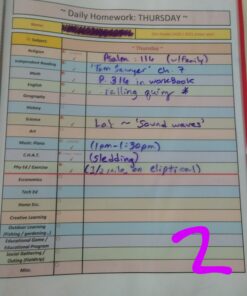 ~ Daily Homework: THURSDAY ~
Name:
Subject: ~ Thursday ~
Religion Psalm : 116 (w/family)
Independent Reading "Tom Sawyer" Ch 7
Math P. 316 in workbook
English
Geography
History
Science Lab ~ "Sound waves"
Art
Music: Piano (1pm-1:30pm)
C.H.A.T. (sledding)
Phy Ed / Exercise on eliptical)
Economics
Tech Ed
Home Ec.
Creative Learning
Outdoor Learning
(Fishing / gardening..)
Educational Game /
Educational Program
Social Gathering /
Outing (Fieldtrip)
Misc.
2